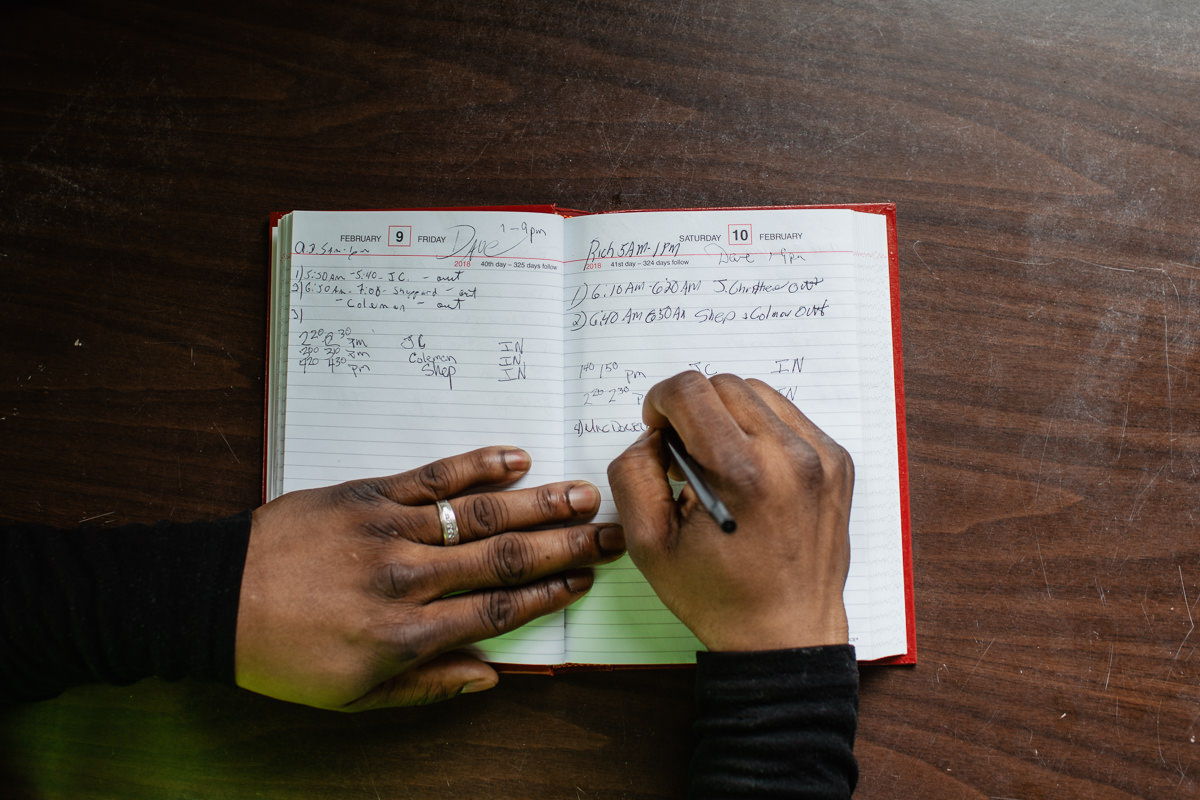 FEBRUARY 9 FRIDAY Dave 1-9pm
2018 40th day – 325 days follow
1) 5:30 Am - 5:40 - J.C. - out
2) 6:50 Am - 7:00 - Sheppard - out
- Coleman - out
3)
2 20 2 30 pm JC IN
pm Coleman IN
4 20 4 30 pm Shep IN
SATURDAY 10 FEBRUARY
Rich 5AM-1PM
2018 41st day – 324 days follow Dave 1 9pm
1) 6:10 AM - 6:20 AM J. Christhee Out
2) 6:40 AM 6:50 AM Shep & Colman Out
1 40 1 50 pm JC IN
2 20 2 30 P IN
4)